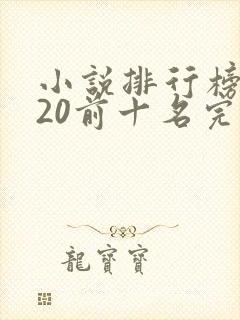 小說排行榜
20前十名完
龍寶寶